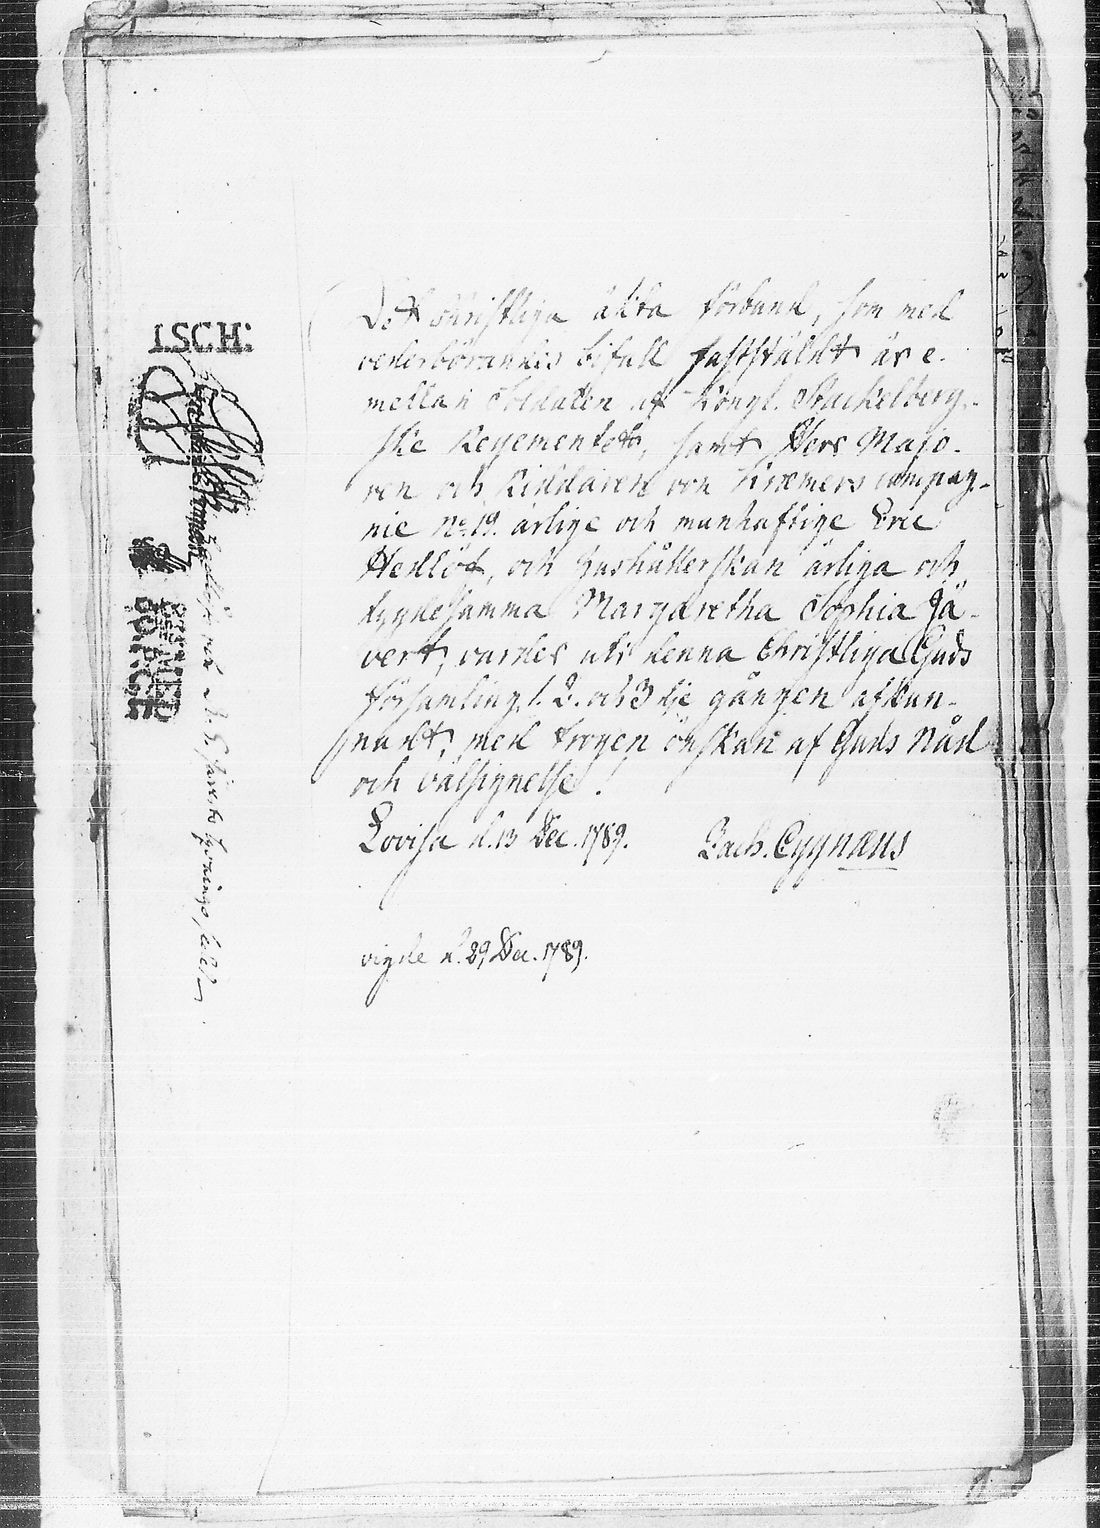 Det Christliga äkta förbund, som med
vederbörandes bifall fastställdt är e-
mellan Soldaten af Kongl. Stackelberg-
ske Regementet, samt Herr Majo-
ren och Riddaren von Kræmers compag-
nie No. 19. ärlige och manhaftige Eric
Hedlöf, och hushållerskan ärliga och
dygdesamma Margaretha Sophia Jä-
vert, varder uti denna Christliga Guds
församling 1. 2. och 3dje gången afkun-
nadt, med trogen önskan af Guds Nåd
och välsignelse!
Lovisa d. 13 Dec. 1789. Zach. Cygnæus
vigde d. 29 Dec. 1789.
T.SCH: